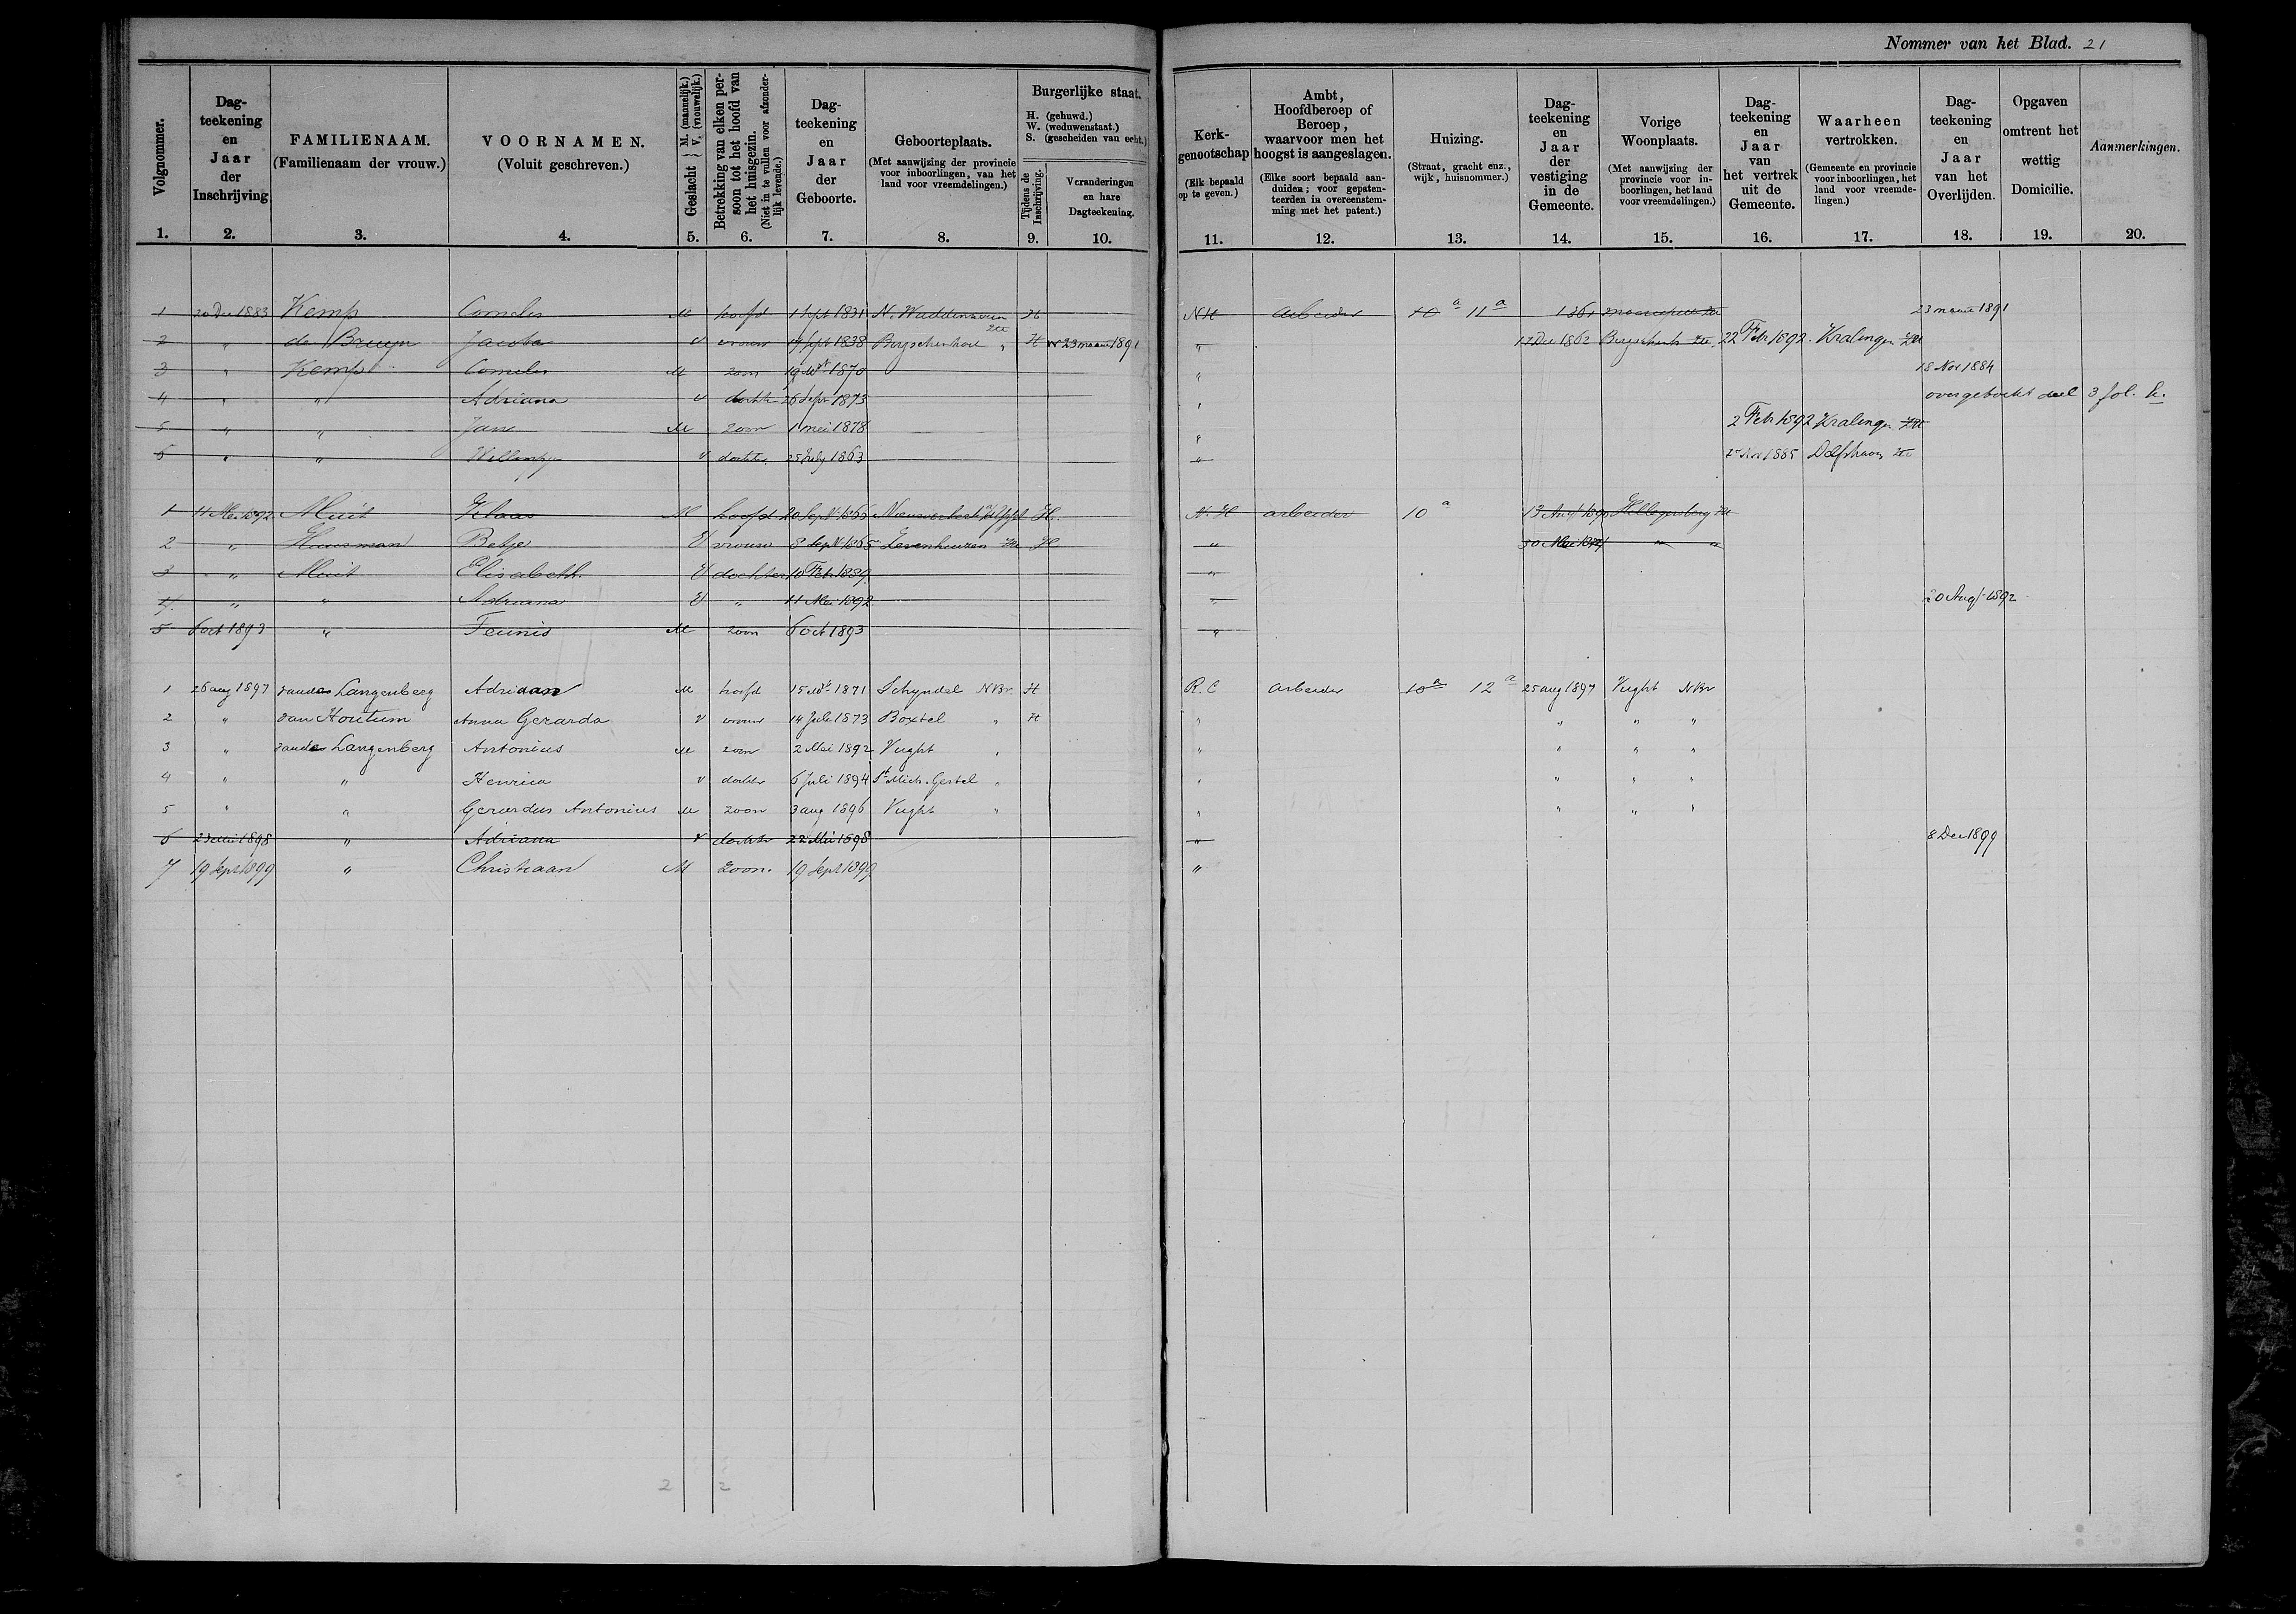 Nommer van het Blad. 21
Volgnommer. 1.
Dagteekening en Jaar der Inschrijving 2.
FAMILIENAAM. (Familienaam der vrouw.) 3.
VOORNAMEN. (Voluit geschreven.) 4.
Geslacht } M. (mannelijk.) V. (vrouwelijk.) 5.
Betrekking van elken persoon tot het hoofd van het huisgezin. (Niet in te vullen voor afzonderlijk levende.) 6.
Dagteekening en Jaar der Geboorte. 7.
Geboorteplaats. (Met aanwijzing der provincie voor inboorlingen, van het land voor vreemdelingen.) 8.
Burgerlijke staat. H. (gehuwd.) W. (weduwenstaat.) S. (gescheiden van echt.)
Tijdens de Inschrijving. 9.
Veranderingen en hare Dagteekening. 10.
Kerkgenootschap (Elk bepaald op te geven.) 11.
Ambt, Hoofdberoep of Beroep, waarvoor men het hoogst is aangeslagen. (Elke soort bepaald aanduiden; voor gepatenteerden in overeenstemming met het patent.) 12.
Huizing. (Straat, gracht enz., wijk, huisnommer.) 13.
Dagteekening en Jaar der vestiging in de Gemeente. 14.
Vorige Woonplaats. (Met aanwijzing der provincie voor inboorlingen, het land voor vreemdelingen.) 15.
Dagteekening en Jaar van het vertrek uit de Gemeente. 16.
Waarheen vertrokken. (Gemeente en provincie voor inboorlingen, het land voor vreemdelingen.) 17.
Dagteekening en Jaar van het Overlijden. 18.
Opgaven omtrent het wettig Domicilie. 19.
Aanmerkingen. 20.
1 20 Dec 1883 Kemp Cornelis M hoofd 1 Sept 1831 N. Waddinxveen H NH Arbeider 10a 11a 1861 23 maart 1891
2 " de Bruyn Jacoba V vrouw Sept 1838 " H W 23 maart 1891 " 17 Dec 1862 22 Febr 1892 Kralingen ZH
3 " Kemp Cornelis M zoon 19 1870 " 18 Nov 1884
4 " " Adriana V dochter 26 Sept 1873 " overgeboekt deel 3 fol.
5 " " Jan M zoon 1 mei 1878 " 2 Febr 1892 Kralingen ZH
6 " " Willempje V dochter 25 July 1863 " Nov 1885 Delfshaven ZH
1 11 Mei 1892 Muit Klaas M hoofd 20 Sept 1866 H. N. H arbeider 10a 13 Aug 1890 Hillegersberg ZH
2 " Huisman Betje V vrouw 8 Sept 1865 Zevenhuizen ZH H. " 30 Mei " "
3 " Muit Elisabeth. V dochter 10 Febr 1889 "
4. " " Adriana V " 11 Mei 1892 " 20 Aug 1892
5 6 oct 1893 " Teunis M zoon 6 oct 1893 "
1 26 aug 1897 van den Langenberg Adriaan M hoofd 15 1871 Schyndel NBr. H R.C arbeider 10a 12a 25 aug 1897 Vught NBr
2 " van Houtum Anna Gerarda V vrouw 14 Juli 1873 Boxtel " H " " " "
3 " van den Langenberg Antonius M zoon 2 Mei 1892 Vught " " " " "
4 " " Henrica V dochter 6 Juli 1894 St Mich. Gestel " " " " "
5 " " Gerardus Antonius M zoon 3 aug 1896 Vught " " " " "
6 23 Mei 1898 " Adriana V dochter 22 Mei 1898 " 8 Dec 1899
7 19 Sept 1899 " Christiaan M zoon. 19 Sept 1899 "
2 2